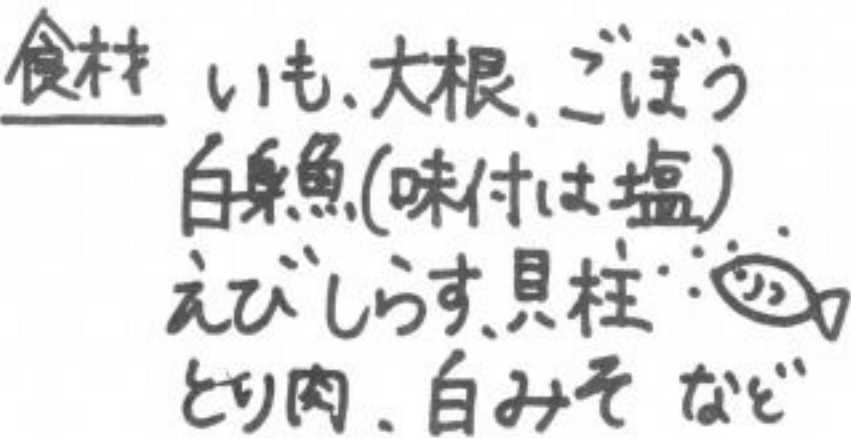 食材 いも、大根、ごぼう
白身魚(味付は塩)
えび しらす、貝柱
とり肉、白みそ など